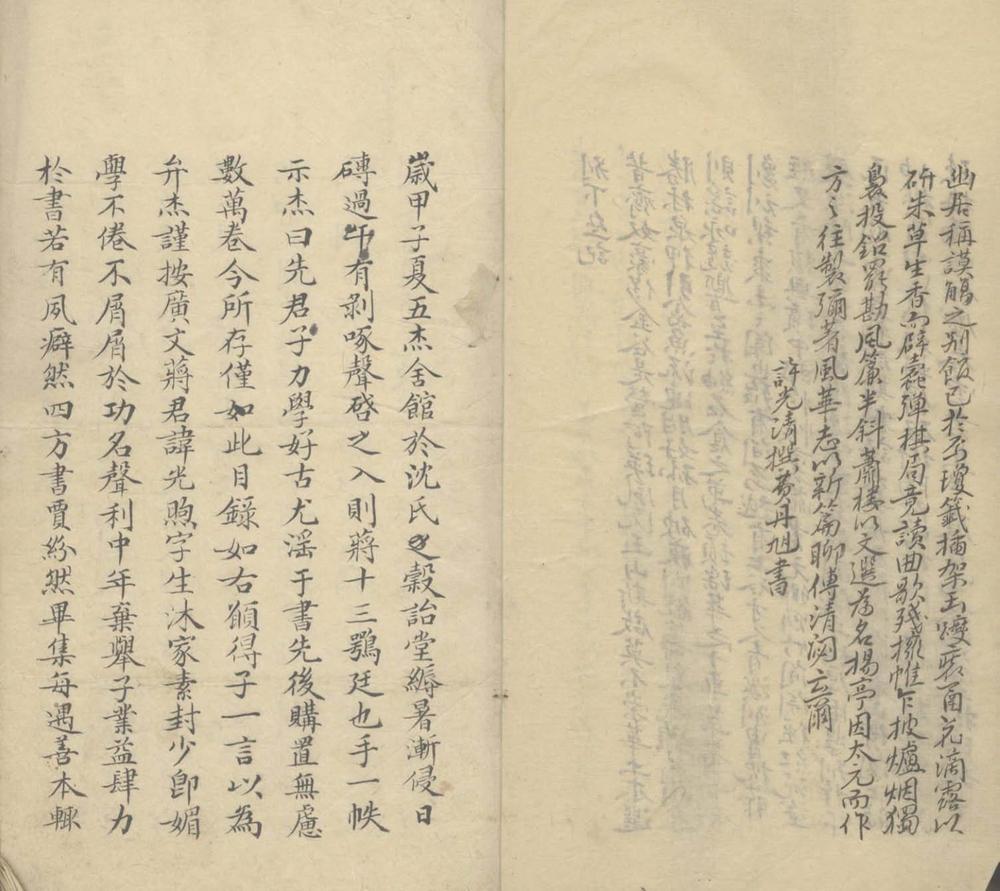 幽居稱謨觴之別館已於𡉏瓊籤插架玉躞裝函花滴露以
研朱草生香而辟蠹彈棋局竟讀曲歌殘擁帷乍披爐烟獨
裊投鉛罷勘風簾半斜蕭樓以文選為名揚亭因太元而作
方之往製彌著風華志以新篇聊傳清閟云爾
許光清撰費丹旭書
歲甲子夏五杰舍館於沈氏之穀詒堂縟暑漸侵日
磚過午有剝啄聲啓之入則蔣十三鶚廷也手一帙
示杰曰先君子力學好古尤滛于書先後購置無慮
數萬卷今所存僅如此目錄如右願得子一言以為
弁杰謹按廣文蔣君諱光煦字生沐家素封少卽媚
學不倦不屑屑於功名聲利中年棄舉子業益肆力
於書若有夙癖然四方書賈紛然畢集每遇善本輒